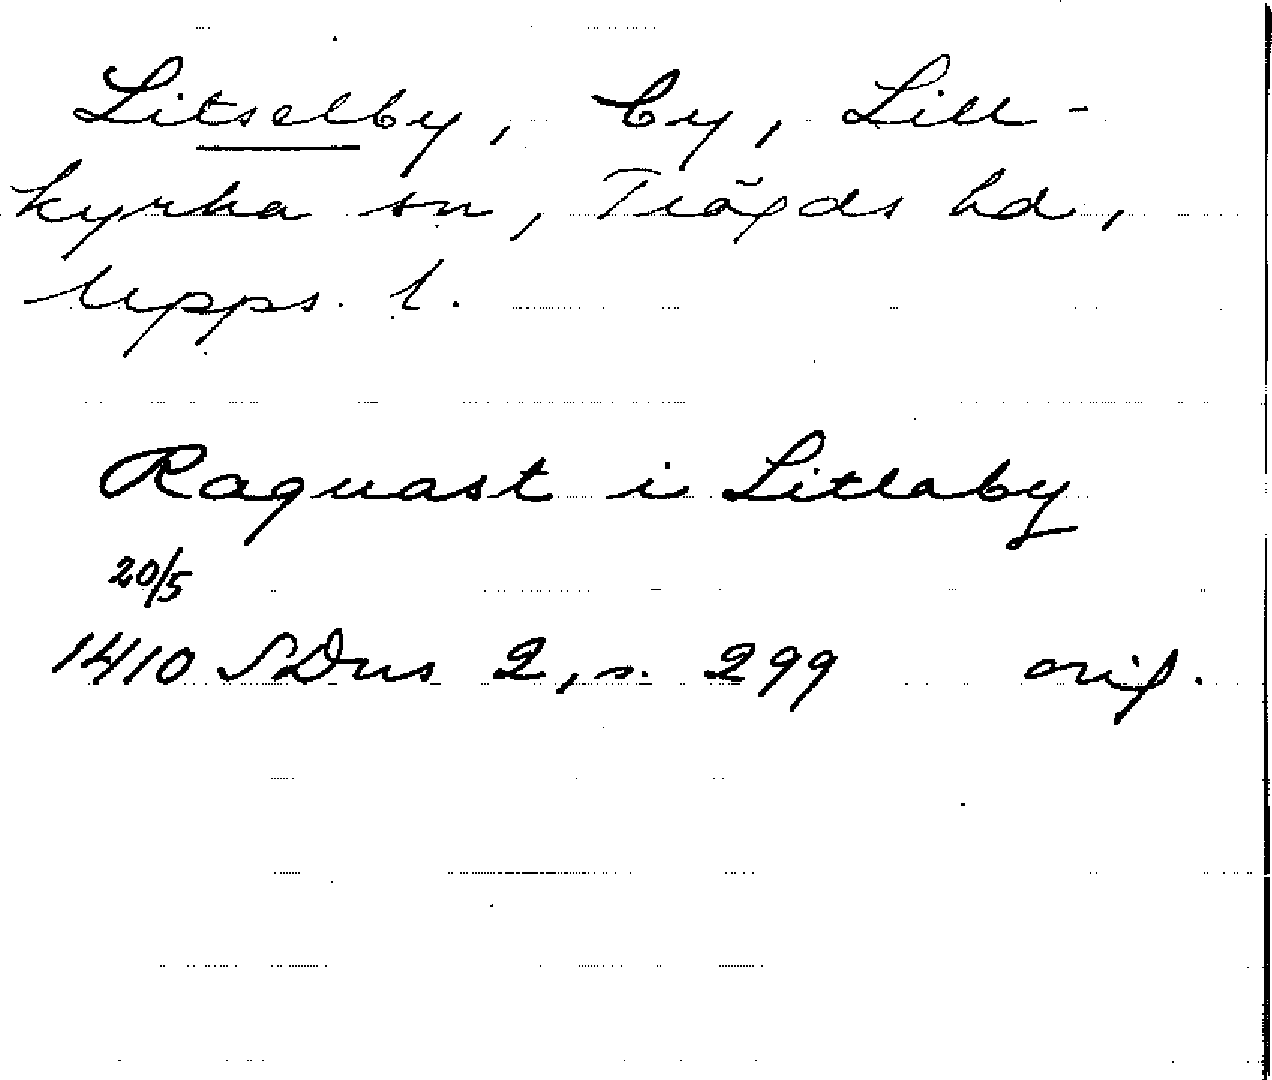 Litselby, by, Lill-
kyrka sn, Trögds hd,
Upps. l.
Raguast i Litlaby
20/5
1410 SDns 2, s. 299 orig.